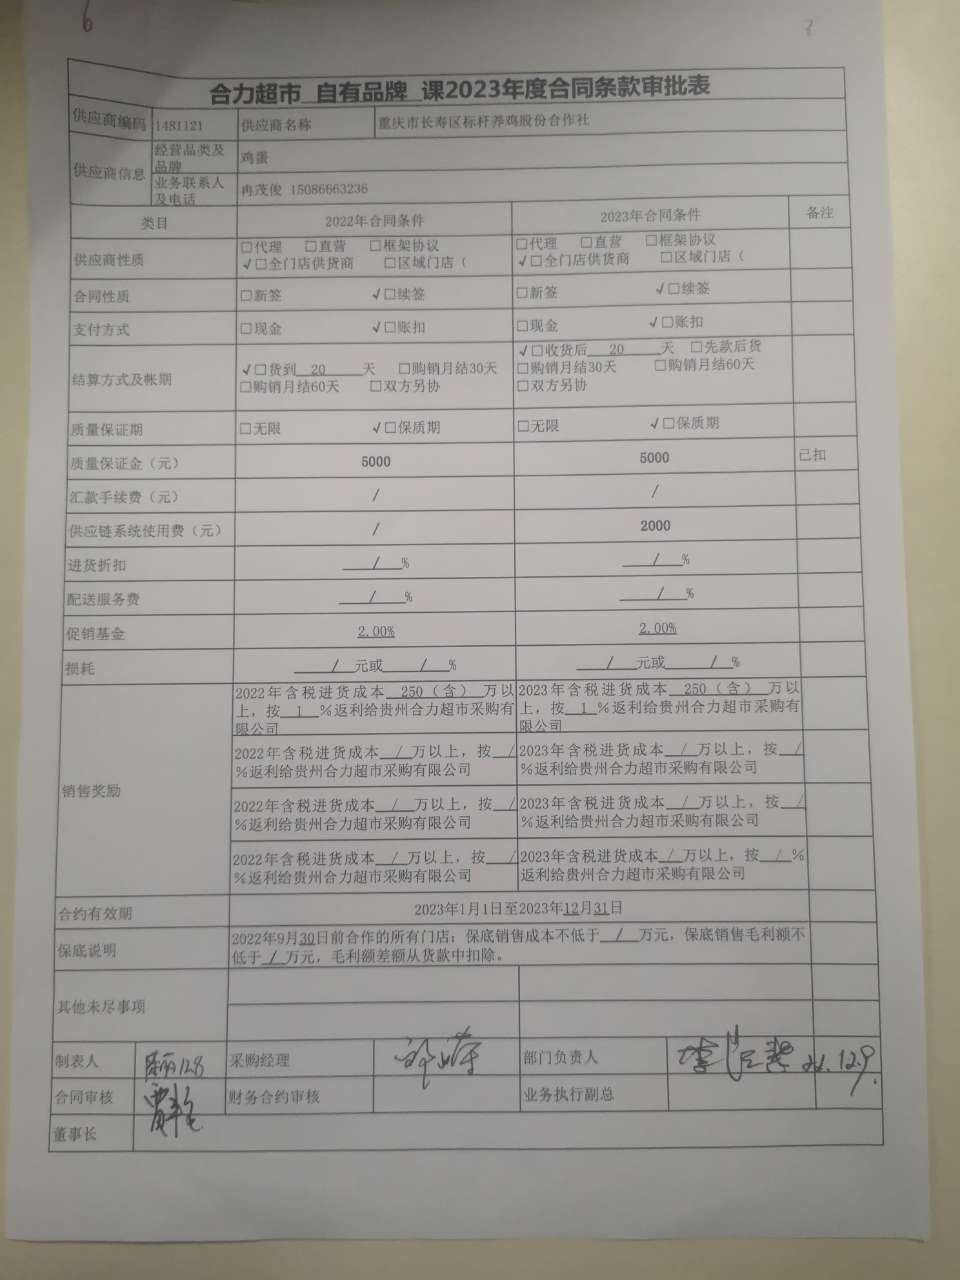 6
合力超市 自有品牌 课2023年度合同条款审批表
供应商编码 1481121 供应商名称 重庆市长寿区标杆养鸡股份合作社
供应商信息 经营品类及品牌 鸡蛋
业务联系人及电话 冉茂俊 15086663236
类目 2022年合同条件 2023年合同条件 备注
供应商性质 □代理 □直营 □框架协议 □代理 □直营 □框架协议
√□全门店供货商 □区域门店（ √□全门店供货商 □区域门店（
合同性质 □新签 √□续签 □新签 √□续签
支付方式 □现金 √□账扣 □现金 √□账扣
结算方式及帐期 √□货到 20 天 □购销月结30天 √□收货后 20 天 □先款后货
□购销月结60天 □双方另协 □购销月结30天 □购销月结60天
□双方另协
质量保证期 □无限 √□保质期 □无限 √□保质期
质量保证金（元） 5000 5000 已扣
汇款手续费（元） / /
供应链系统使用费（元） / 2000
进货折扣 / % / %
配送服务费 / % / %
促销基金 2.00% 2.00%
损耗 / 元或 / % / 元或 / %
销售奖励
2022年含税进货成本 250（含） 万以 2023年含税进货成本 250（含） 万以
上，按 1 %返利给贵州合力超市采购有 上，按 1 %返利给贵州合力超市采购有
限公司 限公司
2022年含税进货成本 / 万以上，按 / 2023年含税进货成本 / 万以上，按 /
%返利给贵州合力超市采购有限公司 %返利给贵州合力超市采购有限公司
2022年含税进货成本 / 万以上，按 / 2023年含税进货成本 / 万以上，按 /
%返利给贵州合力超市采购有限公司 %返利给贵州合力超市采购有限公司
2022年含税进货成本 / 万以上，按 / 2023年含税进货成本 / 万以上，按 / %
%返利给贵州合力超市采购有限公司 返利给贵州合力超市采购有限公司
合约有效期 2023年1月1日至2023年12月31日
保底说明 2022年9月30日前合作的所有门店：保底销售成本不低于 / 万元，保底销售毛利额不
低于 / 万元，毛利额差额从货款中扣除。
其他未尽事项
制表人 128 采购经理 部门负责人 22.12.9.
合同审核 财务合约审核 业务执行副总
董事长